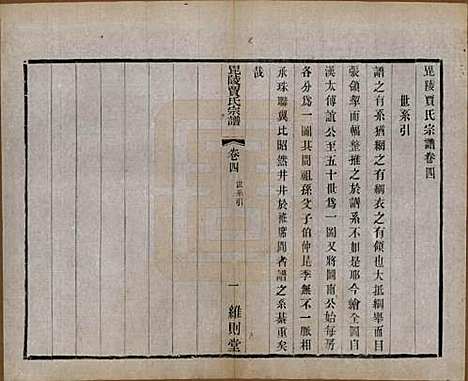 毘陵賈氏宗譜卷四
世系引
譜之有系猶網之有綱衣之有領也大抵綱舉而目
張領挈而幅整推之於譜系不知是耶今繪全圖自
漢太傅誼公至五十世爲一圖又將圖南公始每房
各分爲一圖其間祖孫父子伯仲叔季無不一脈相
承珠聯翼比昭然井井於袵席間者譜之系綦重矣
哉
毘陵賈氏宗譜
卷四
世系引
一
維則堂